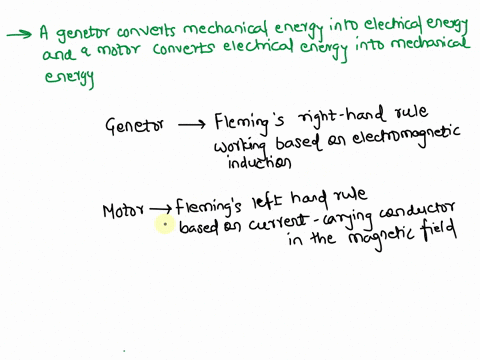 → A genetor converts mechanical energy into electrical energy
and a motor converts electrical energy into mechanical
energy
Genetor → Fleming's right-hand rule
working based on electromagnetic
induction
Motor → Fleming's left hand rule
based on current-carying conductor
in the magnetic field